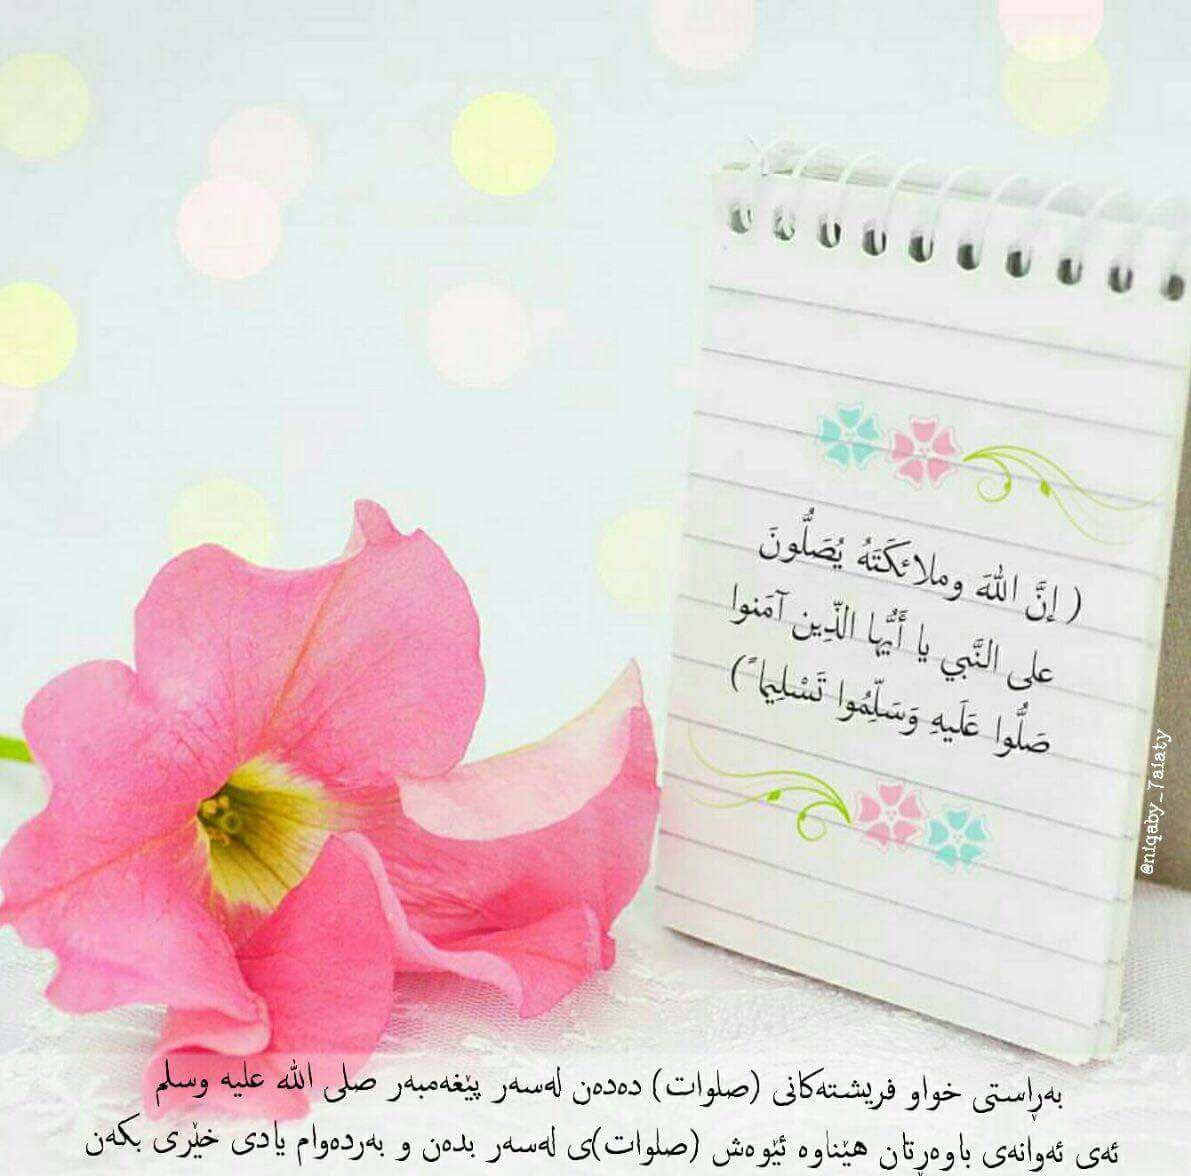 ( إنَّ اللهَ وملائكَتَهُ يُصَلُّونَ
على النَّبي يا أَيُّها الذّين آمَنوا
صَلُّوا عَلَيهِ وَسَلِّمُوا تَسْلِيما ً)
@niqaby_7aiaty
بەڕاستی خواو فریشتەکانی (صلوات) دەدەن لەسەر پێغەمبەر صلى الله عليه وسلم
ئەی ئەوانەی باوەڕتان هێناوە ئێوەش (صلوات)ی لەسەر بدەن و بەردەوام یادی خێری بکەن